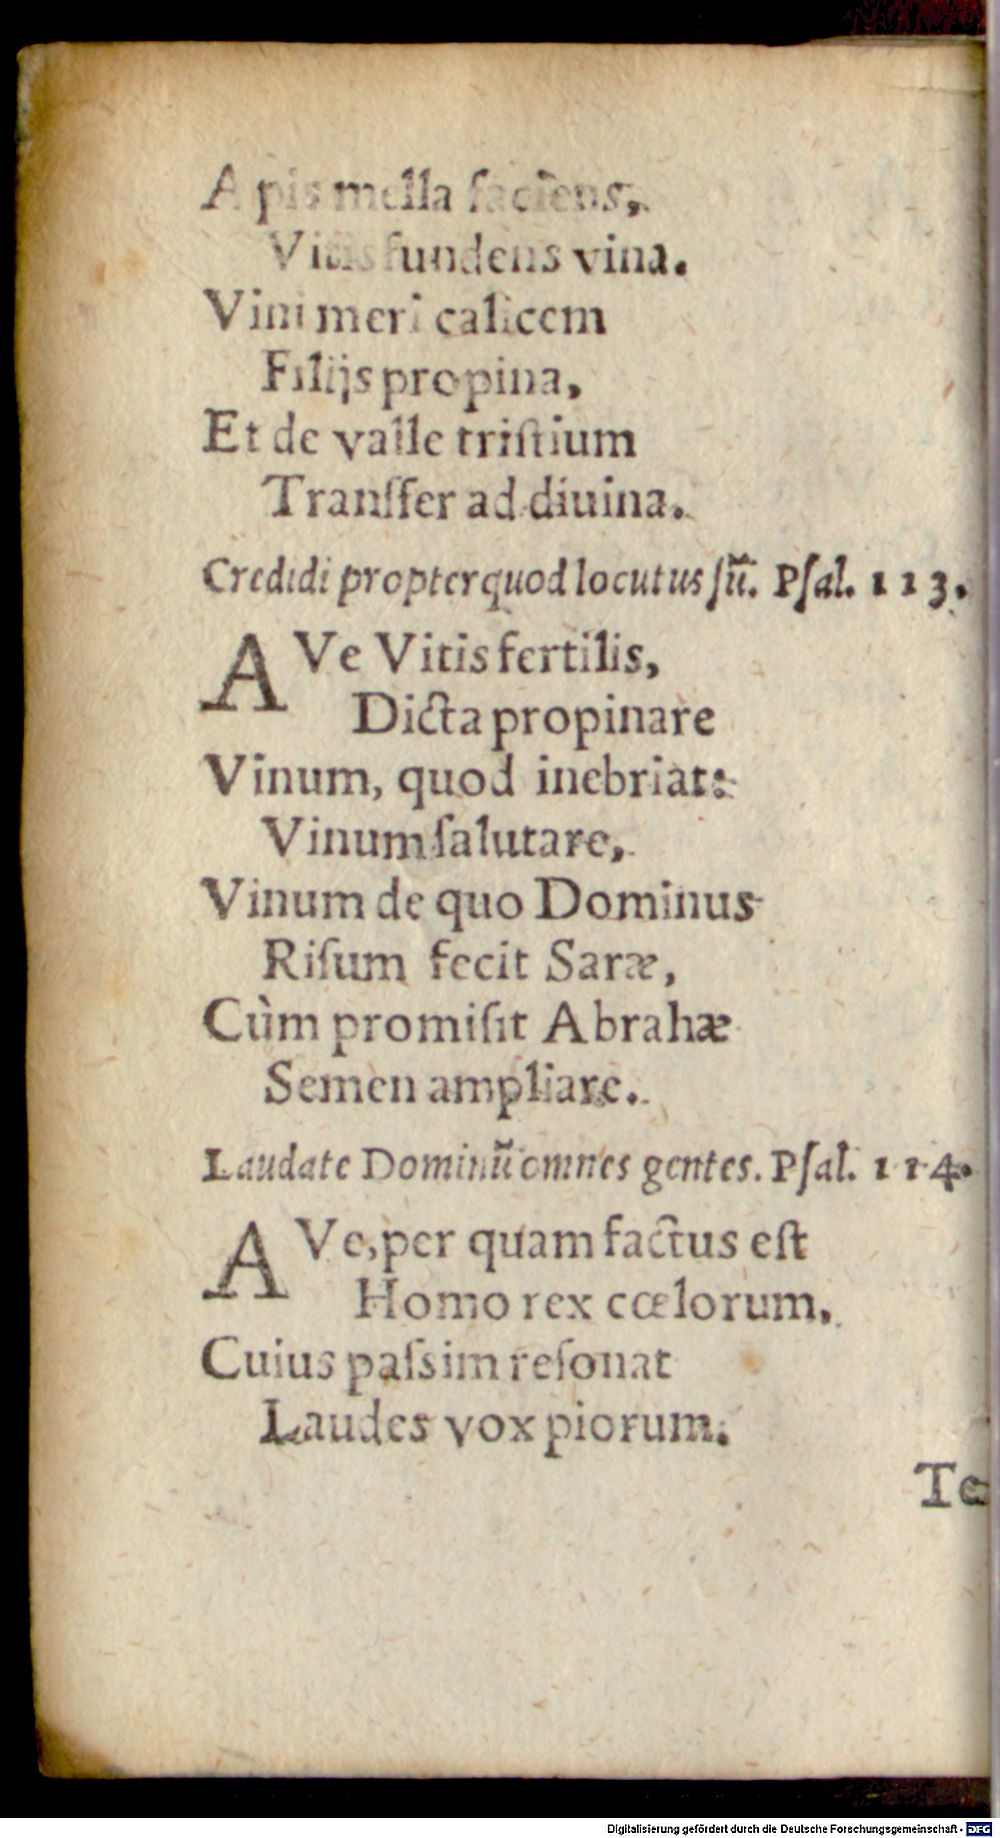 Apis mella faciens,
Vitis fundens vina.
Vini meri calicem
Filijs propina,
Et de valle triſtium
Tranſfer ad diuina.
Credidi propter quod locutus ſũ. Pſal. 113.
AVe Vitis fertilis,
Dicta propinare
Vinum, quod inebriat:
Vinum ſalutare,
Vinum de quo Dominus
Riſum fecit Saræ,
Cùm promiſit Abrahæ
Semen ampliare.
Laudate Dominũ omnes gentes. Pſal. 114.
AVe, per quam factus eſt
Homo rex cœlorum,
Cuius paſsim reſonat
Laudes vox piorum.
Te
Digitalisierung gefördert durch die Deutsche Forschungsgemeinschaft - DFG